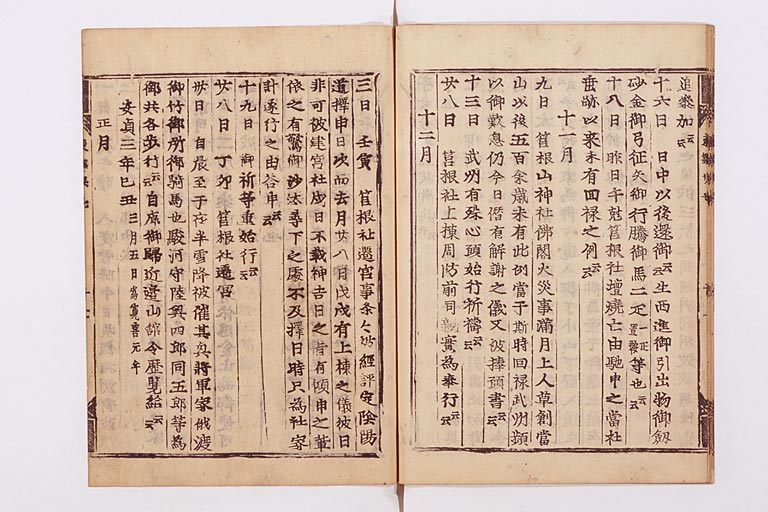 追参加 云云
十六日 日中以後還御 云云 生西進御引出物御釼
砂金御弓征矢御行騰御馬二疋 一疋置鞍 等也 云云
十八日 昨日午尅筥根社壇燒亡由馳申之當社
垂跡以来未有回禄之例 云云
十一月
九日 筥根山神社佛閣火災事滿月上人草創當
山以後五百余歳未有此例當于斯時回禄武州頻
以御歎息仍今日偕有解謝之儀又被捧願書 云云
十三日 武州有殊心頭始行祈禱 云云
廿八日 筥根社上棟周防前司親實為奉行 云云
十二月
三日 壬寅 筥根社遷宮事条々被經評定陰陽
道擇申日次而去月廿八日戊戌有上棟之儀彼日
非可被建宮社歳日不載神吉日之旨有傾申之輩
依之有驚御沙汰尋下之處不及擇日時只為社家
計遂行之由答申 云云
十九日 御祈等重始行 云云
廿八日 丁卯 筥根社遷宮
廿日 自晨至于夜半雪降被催其興將軍家俄渡
御竹御所御騎馬也駿河守陸奥四郎同五郎等為
御共各歩行 云云 自廊御歸近邊山館令歴覧給 云云
安貞三年己丑 三月五日為寛喜元年
正月